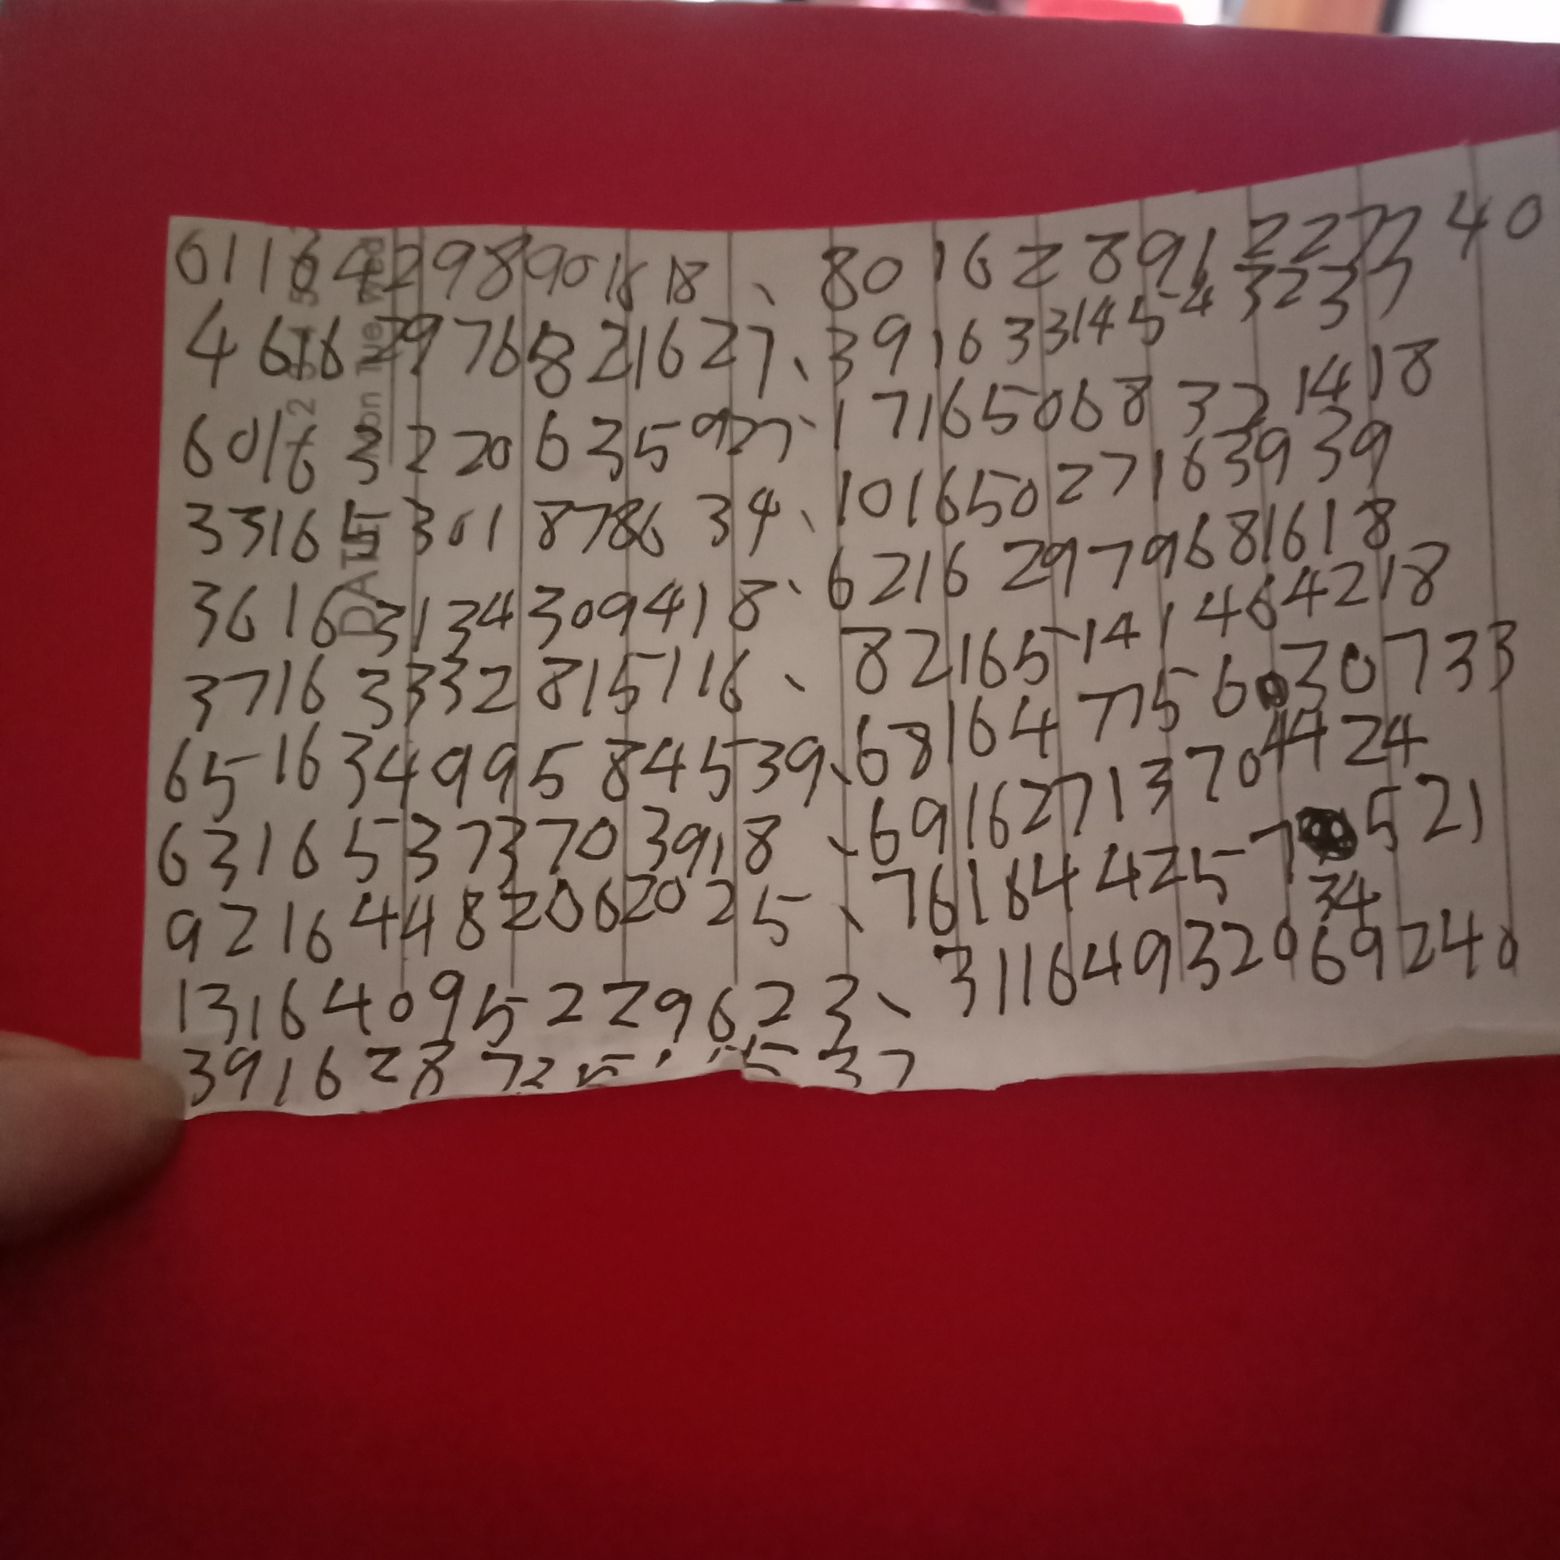 61164298901618、80162891227740
461629765821627、39163314543237
6016322063592７、17165068321418
3316530187863４、10165027163939
3616313430941８、62162979681618
3716333281５116、82165141464218
65163499584539、681647756030733
6316537370３918、69162713704424
92164482062025、7616442573４521
13164095229623、31164932069240
3916287
DATE